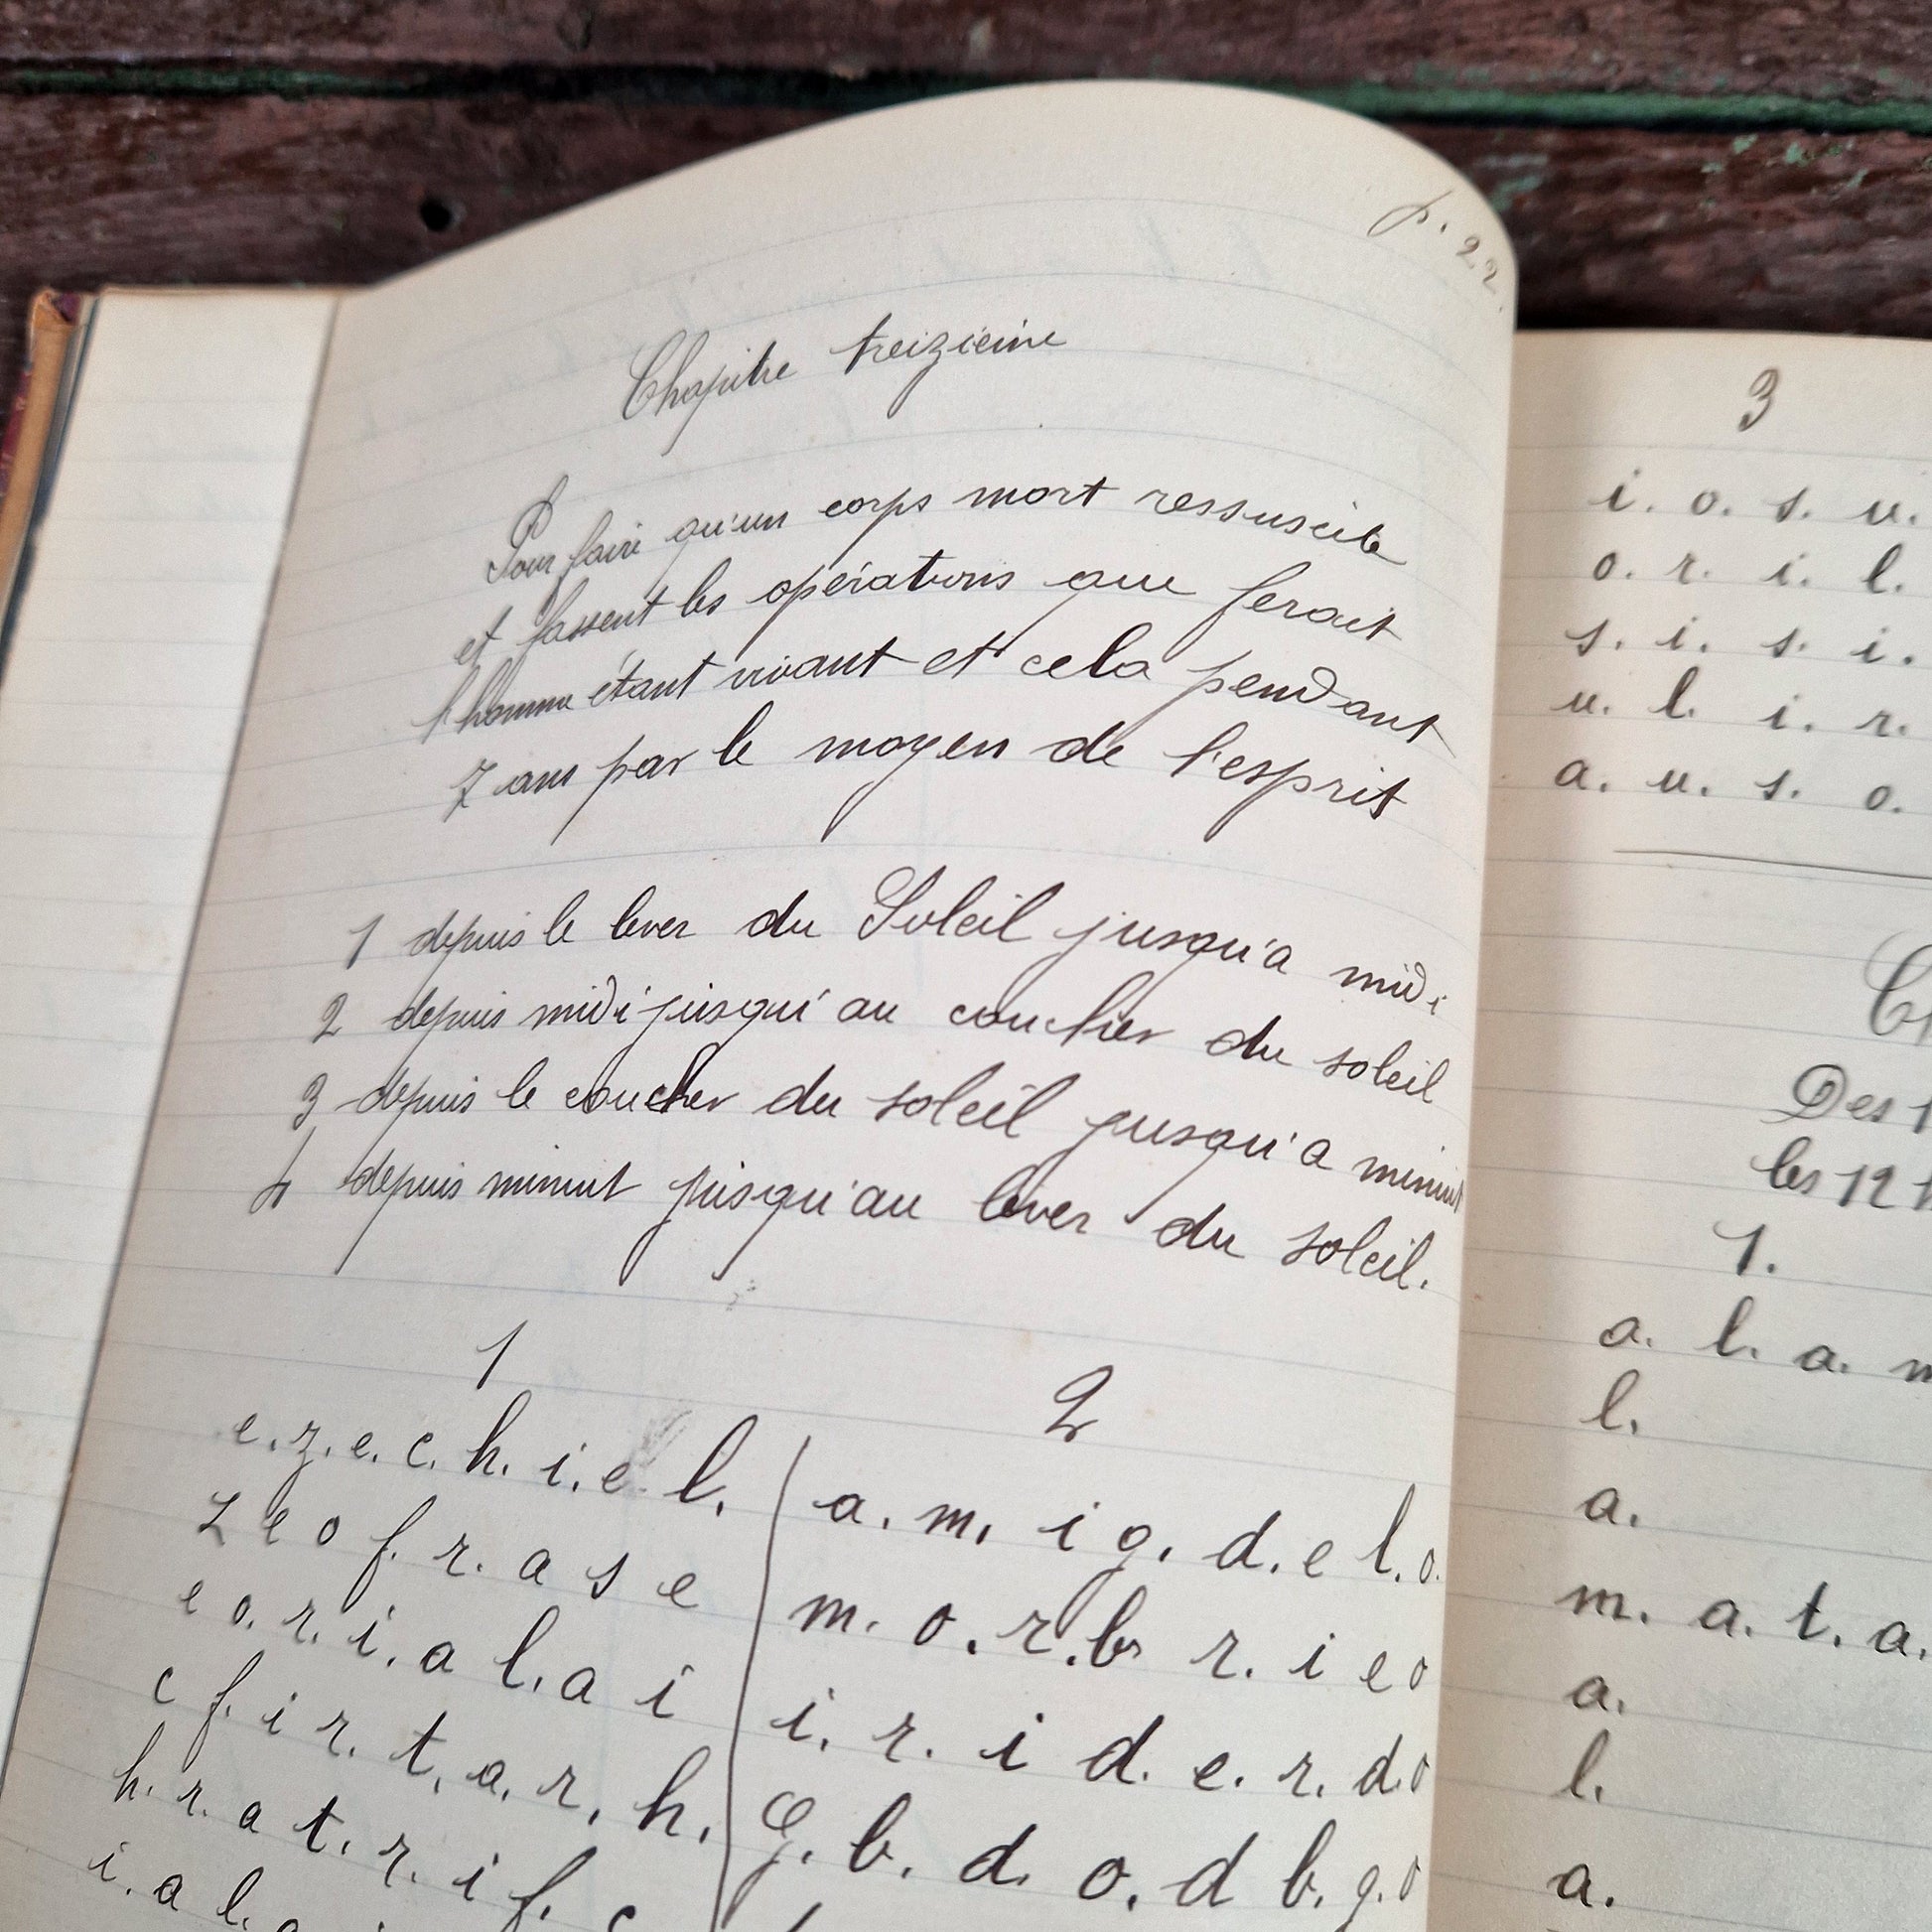 p. 22.
Chapitre treizième
Pour faire qu'un corps mort ressuscite
et fassent les opérations que ferait
l'homme étant vivant et cela pendant
7 ans par le moyen de l'esprit
1 depuis le lever du Soleil jusqu'a midi
2 depuis midi jusqu'au coucher du soleil
3 depuis le coucher du soleil jusqu'a minuit
4 depuis minuit jusqu'au lever du soleil.
1
e. z. e. c. h. i. e l.
z e o f. r. a s e
e o. r. i. a l. a i
c f. i r. t. a. r. h.
h. r. a t. r. i f. c
i. a l. a
2
a. m. i g. d. e l. o.
m. o. r. b r. i e o
i. r. i d. e. r. d. o
g. b. d. o. d b. g. o
3
i. o. s. u.
o. r. i. l.
s. i. s. i.
u. l. i. r.
a. u. s. o.
Des
les 12
1.
a. l. a. m
l.
a.
m. a. t. a.
a.
l.
a.